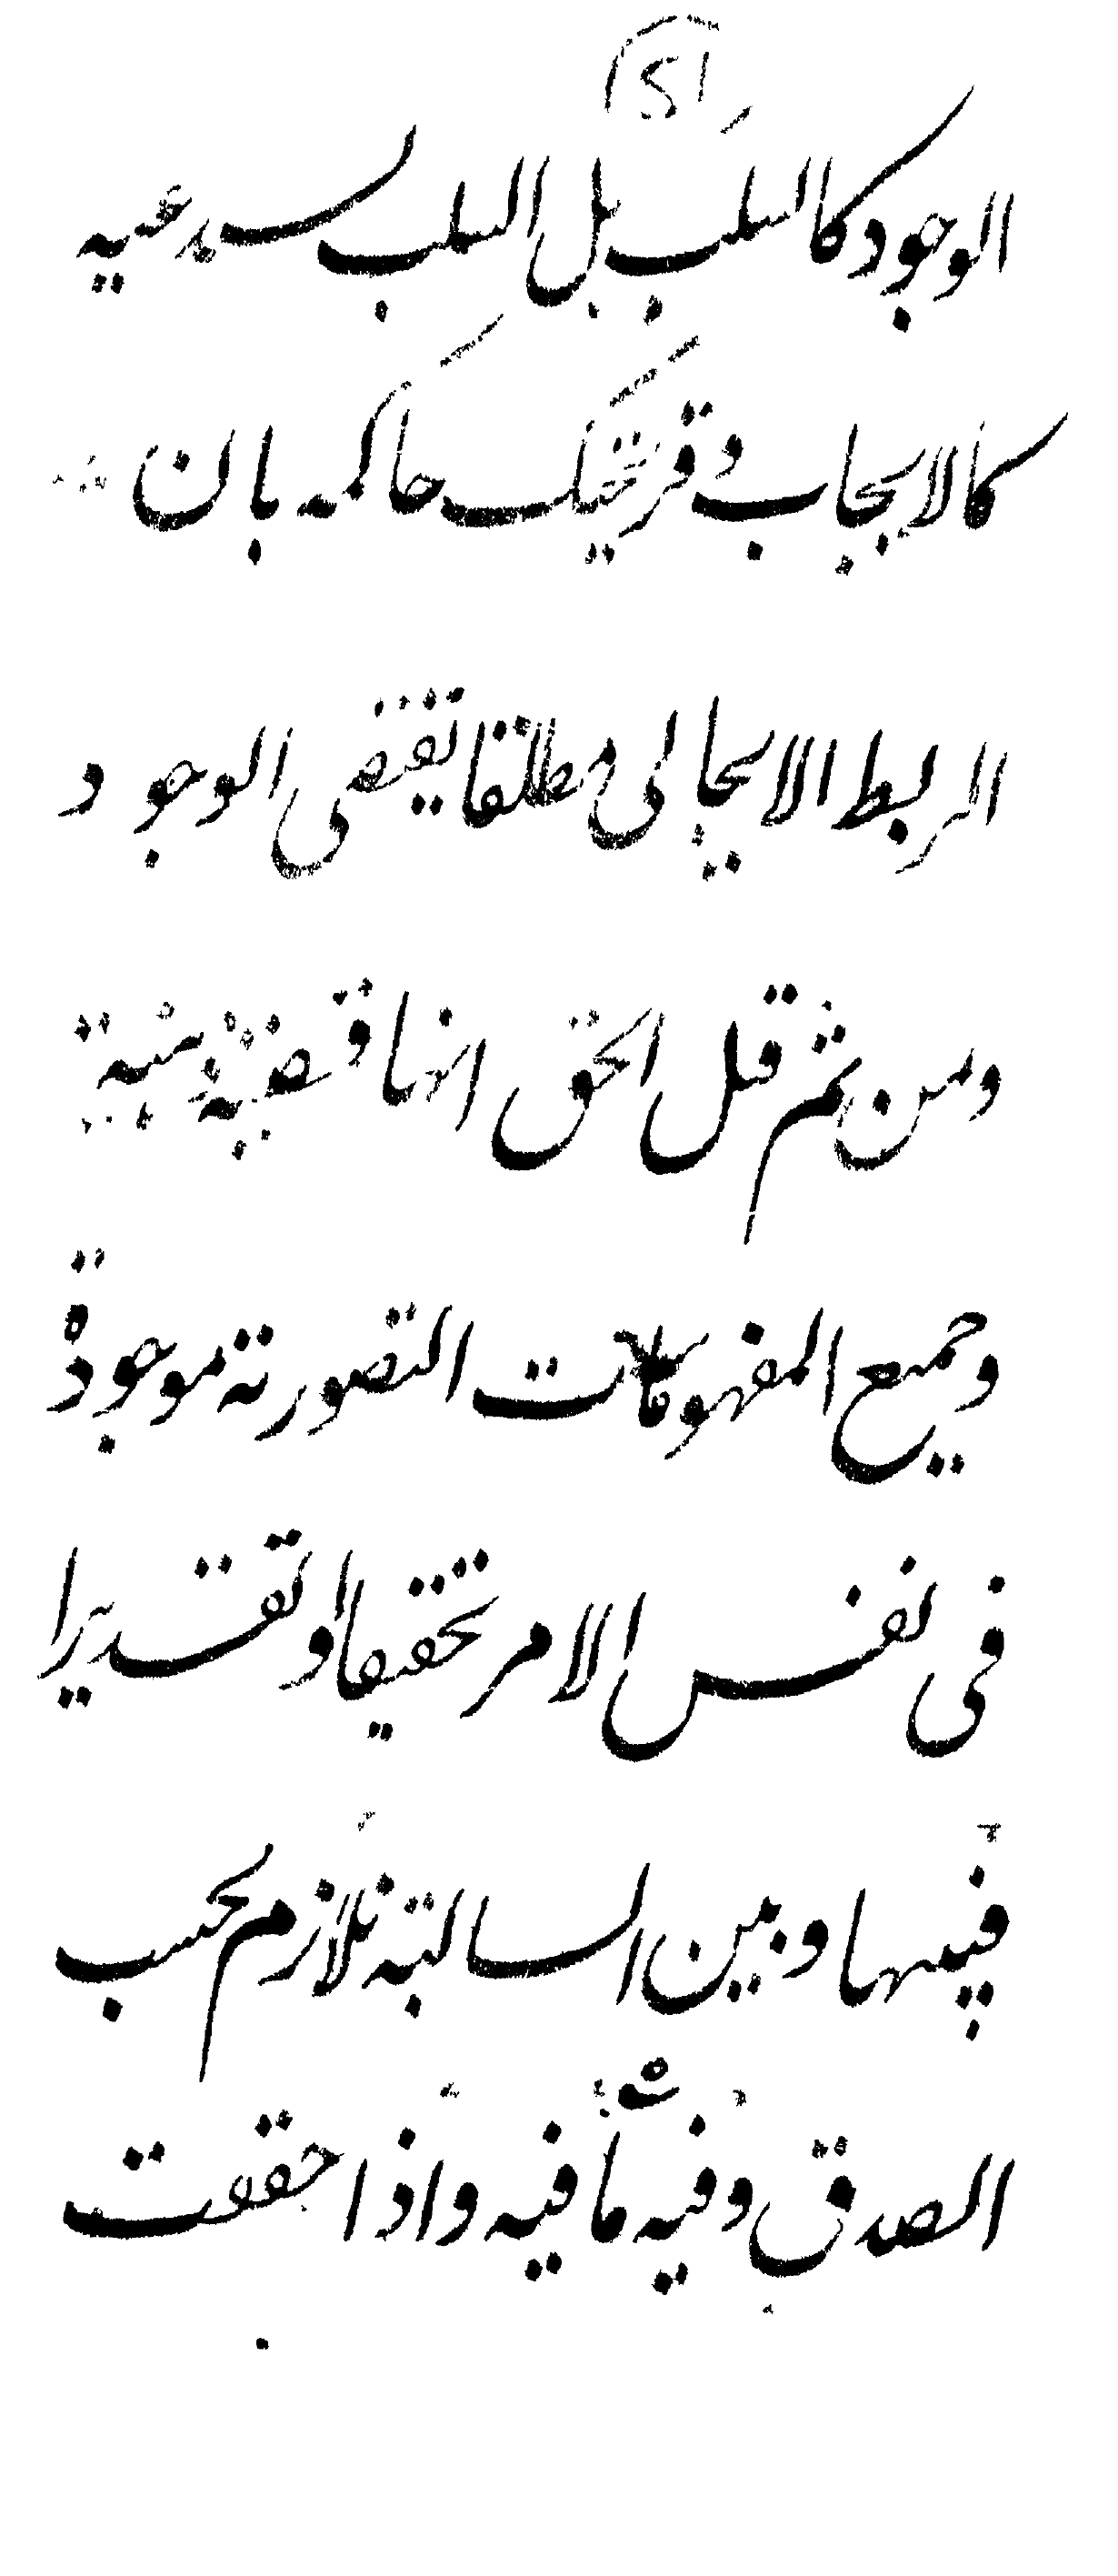 الوجود كالسلب بل السلب يستدعيه
كالايجاب و قريحتك حاكمة بان
الربط الايجابى مطلقا يقتضى الوجود
ومن ثم قيل الحق انها قضية
وجميع المفهومات التصورية موجودة
فى نفس الامر تحقيقا او تقديرا
فبينها وبين السالبة تلازم بحسب
الصدق وفيه ما فيه واذا حققت